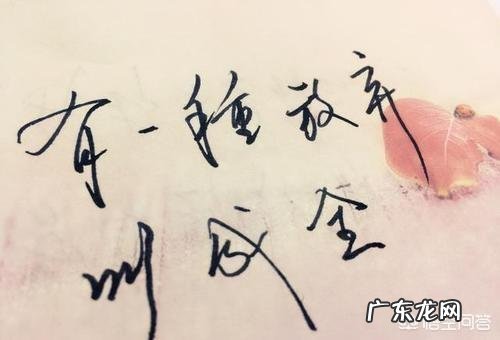 有一種放弃
叫成全
广东龙网
悟空问答